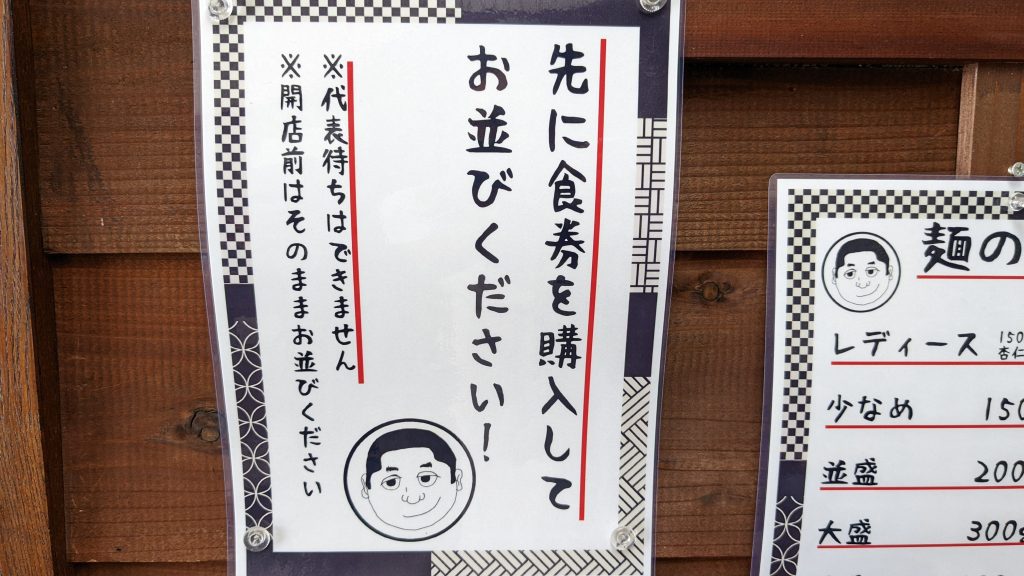 先に食券を購入して
お並びください!
※代表待ちはできません
※開店前はそのままお並びください
麺の
レディース 150
杏仁
少なめ 150
並盛 200
大盛 300g